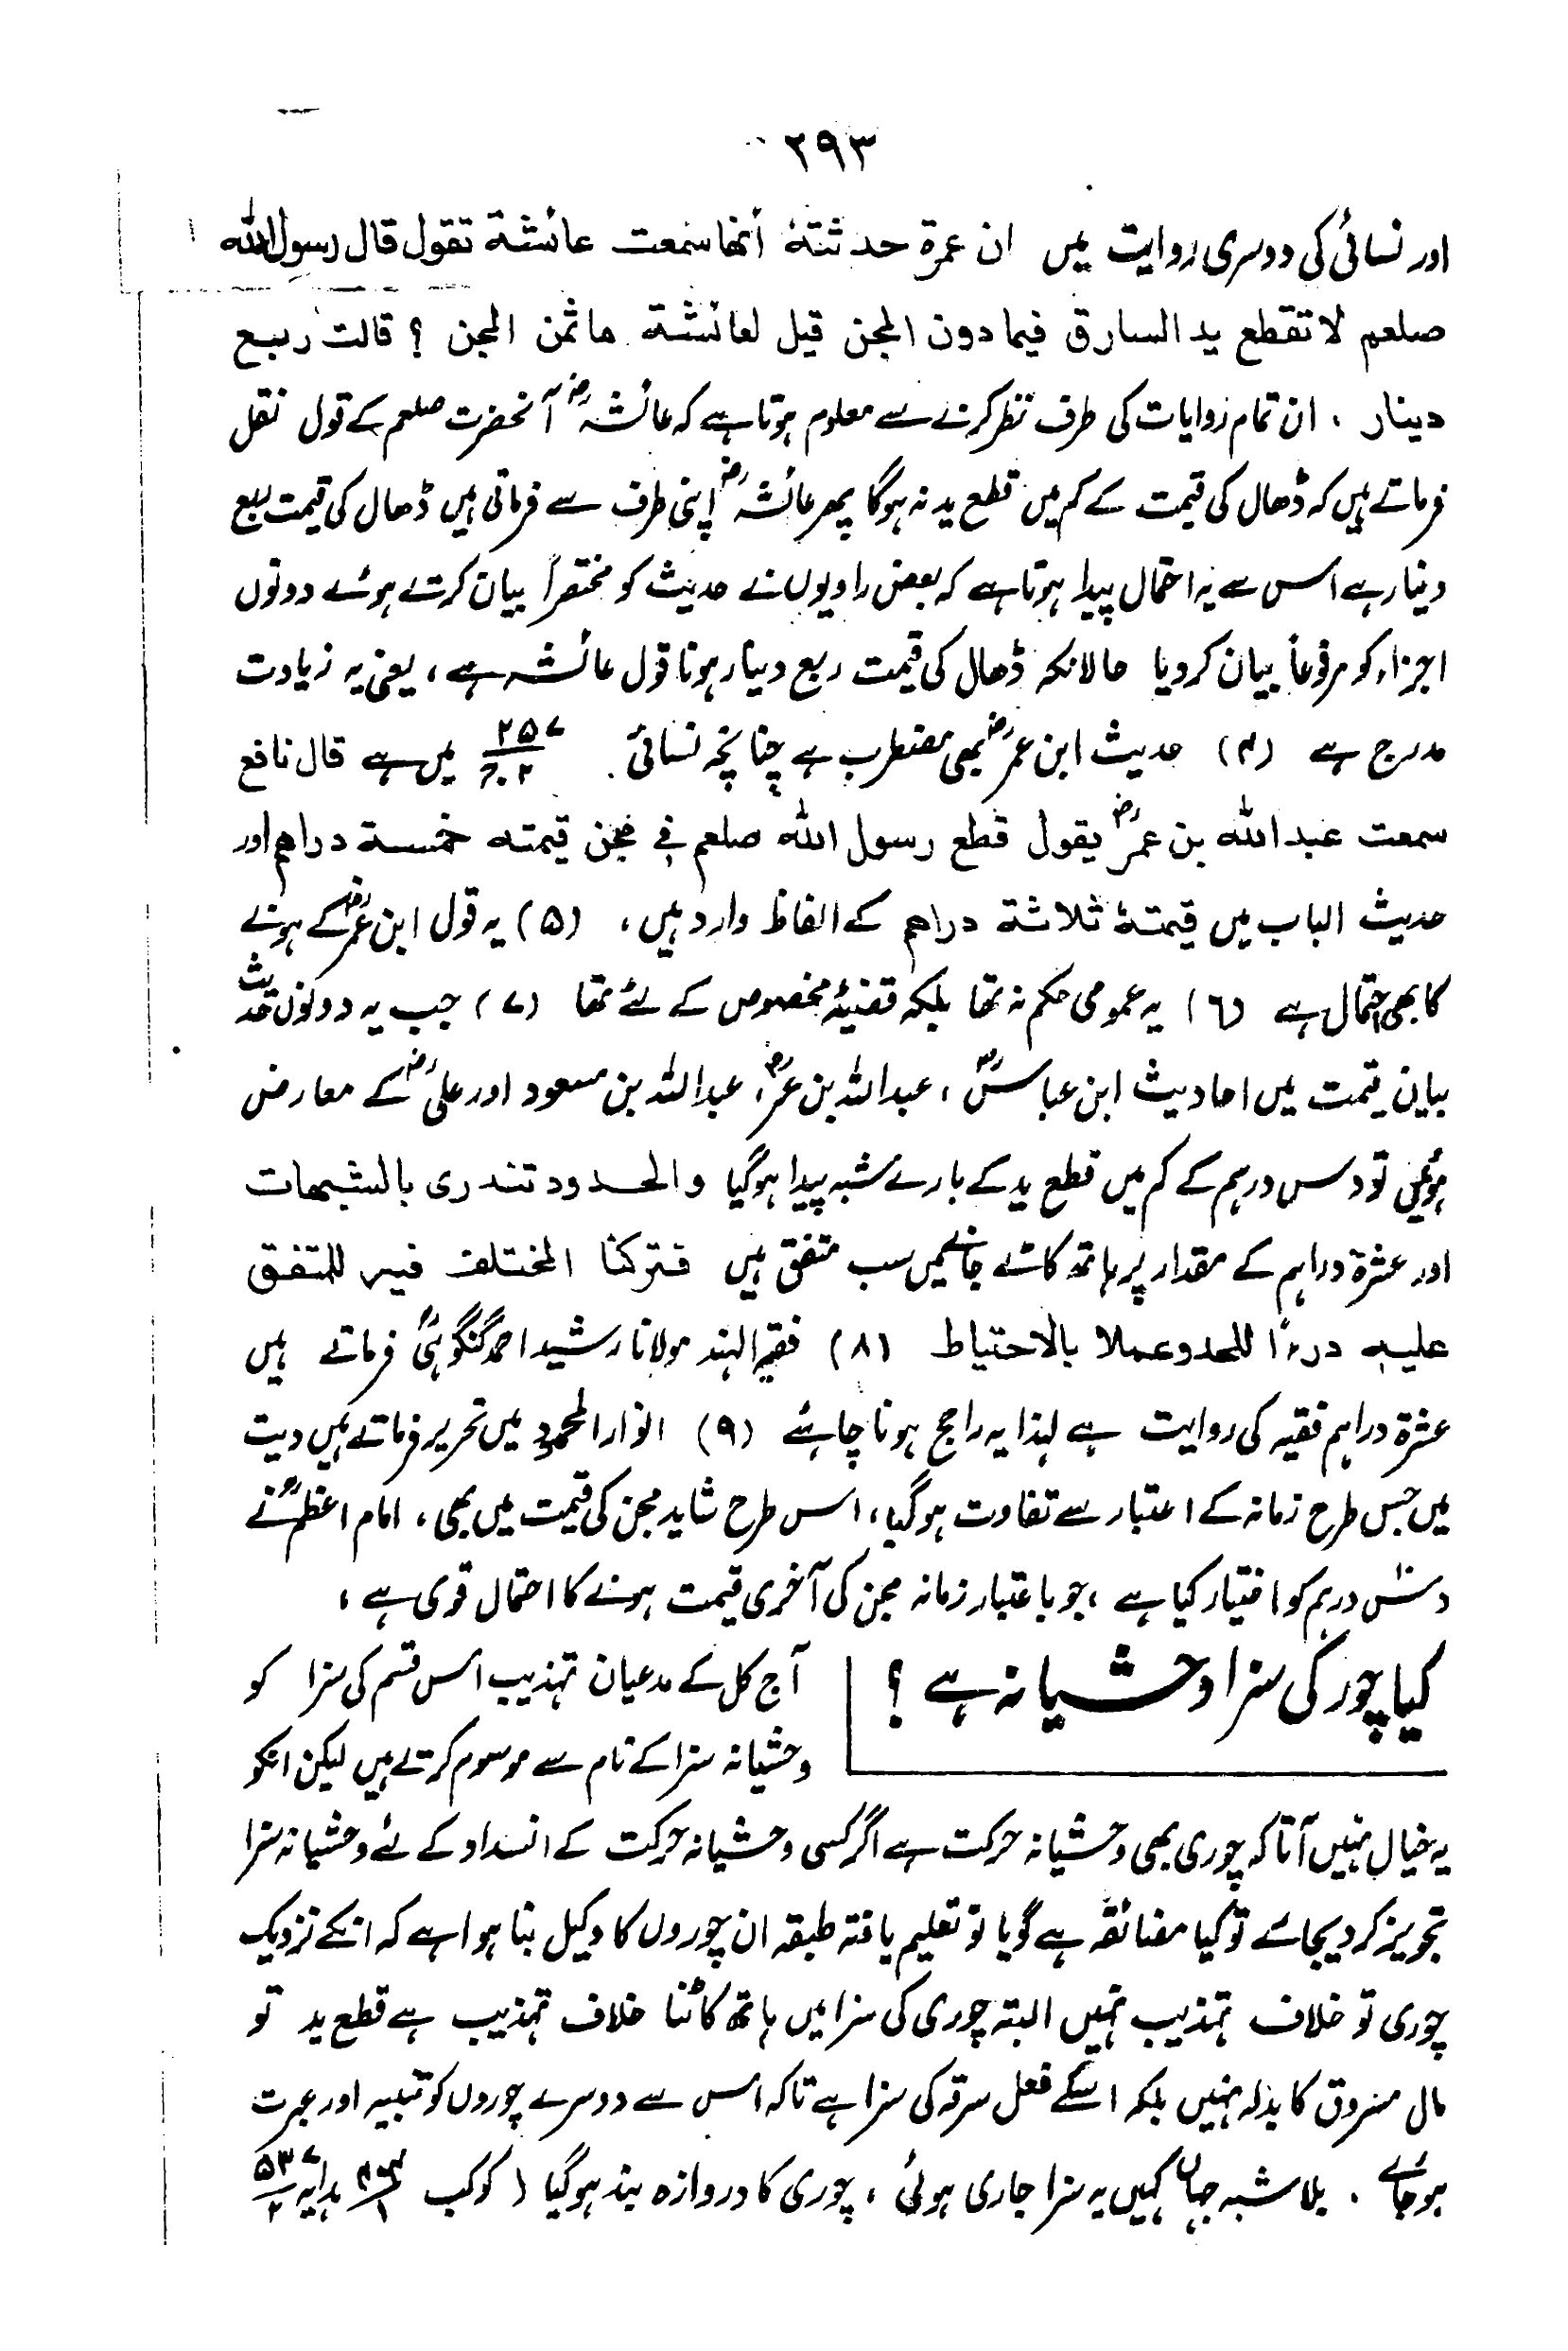 ۲۹۳
اور نسائی کی دوسری روایت میں ان عمرة حدثتهٗ أنها سمعت عائشة تقول قال رسول الله
صلعم لا تقطع يد السارق فيما دون المجن قيل لعائشة ما ثمن المجن ؟ قالت ربع
دینار ۔ ان تمام روایات کی طرف نظر کرنے سے معلوم ہوتا ہے کہ عائشہؓ آنحضرت صلعم کے قول نقل
فرماتے ہیں کہ ڈھال کی قیمت کے کم میں قطع ید نہ ہوگا پھر عائشہؓ اپنی طرف سے فرماتی ہیں ڈھال کی قیمت ربع
دینار ہے اس سے یہ احتمال پیدا ہوتا ہے کہ بعض راویوں نے حدیث کو مختصراً بیان کرتے ہوئے دونوں
اجزاء کو مرفوعاً بیان کردیا حالانکہ ڈھال کی قیمت ربع دینار ہونا قول عائشہ ہے ، یعنی یہ زیادت
مدرج ہے (۴) حدیث ابن عمرؓ بھی مضطرب ہے چنانچہ نسائی ۲۵۷/۲ج میں ہے قال نافع
سمعت عبد الله بن عمرؓ يقول قطع رسول الله صلعم في مجن قيمته خمسة دراهم اور
حدیث الباب میں قيمتهٗ ثلاثة دراهم کے الفاظ وارد ہیں ، (۵) یہ قول ابن عمرؓ کے ہونے
کا بھی احتمال ہے (۶) یہ عمومی حکم نہ تھا بلکہ قضیۂ مخصوص کے لئے تھا (۷) جب یہ دونوں حدیث
بیان قیمت میں احادیث ابن عباسؓ ، عبداللہ بن عمرؓ ، عبداللہ بن مسعود اور علیؓ کے معارض
ہوئیں تو دس درہم کے کم میں قطع ید کے بارے شبہ پیدا ہوگیا والحدود تندری بالشبهات
اور عشرة دراہم کے مقدار پر ہاتھ کاٹے جانے میں سب متفق ہیں فتركنا المختلف فيه للمتفق
عليه درءًا للحد وعملا بالاحتياط (۸) فقیہ الہند مولانا رشید احمد گنگوہیؒ فرماتے ہیں
عشرة دراہم فقیہ کی روایت ہے لہذا یہ راجح ہونا چاہئے (۹) انوار المحمود میں تحریر فرماتے ہیں دیت
میں جس طرح زمانہ کے اعتبار سے تفاوت ہوگیا ، اس طرح شاید مجن کی قیمت میں بھی ، امام اعظمؒ نے
دس درہم کو اختیار کیا ہے ، جو باعتبار زمانہ مجن کی آخری قیمت ہونے کا احتمال قوی ہے ،
کیا چور کی سزا وحشیانہ ہے ؟
آج کل کے مدعیان تہذیب اس قسم کی سزا کو
وحشیانہ سزا کے نام سے موسوم کرتے ہیں لیکن انکو
یہ خیال نہیں آتا کہ چوری بھی وحشیانہ حرکت ہے اگر کسی وحشیانہ حرکت کے انسداد کے لئے وحشیانہ سزا
تجویز کردیجائے تو کیا مضائقہ ہے گویا نو تعلیم یافتہ طبقہ ان چوروں کا وکیل بنا ہوا ہے کہ انکے نزدیک
چوری تو خلاف تہذیب نہیں البتہ چوری کی سزا میں ہاتھ کاٹنا خلاف تہذیب ہے قطع ید تو
مال مسروق کا بدلہ نہیں بلکہ اسکے فعل سرقہ کی سزا ہے تاکہ اس سے دوسرے چوروں کو تنبیہ اور عبرت
ہوجائے ۔ بلا شبہ جہاں کہیں یہ سزا جاری ہوئی ، چوری کا دروازہ بند ہوگیا ( کوکب ہدایہ ۵۳۷/۲